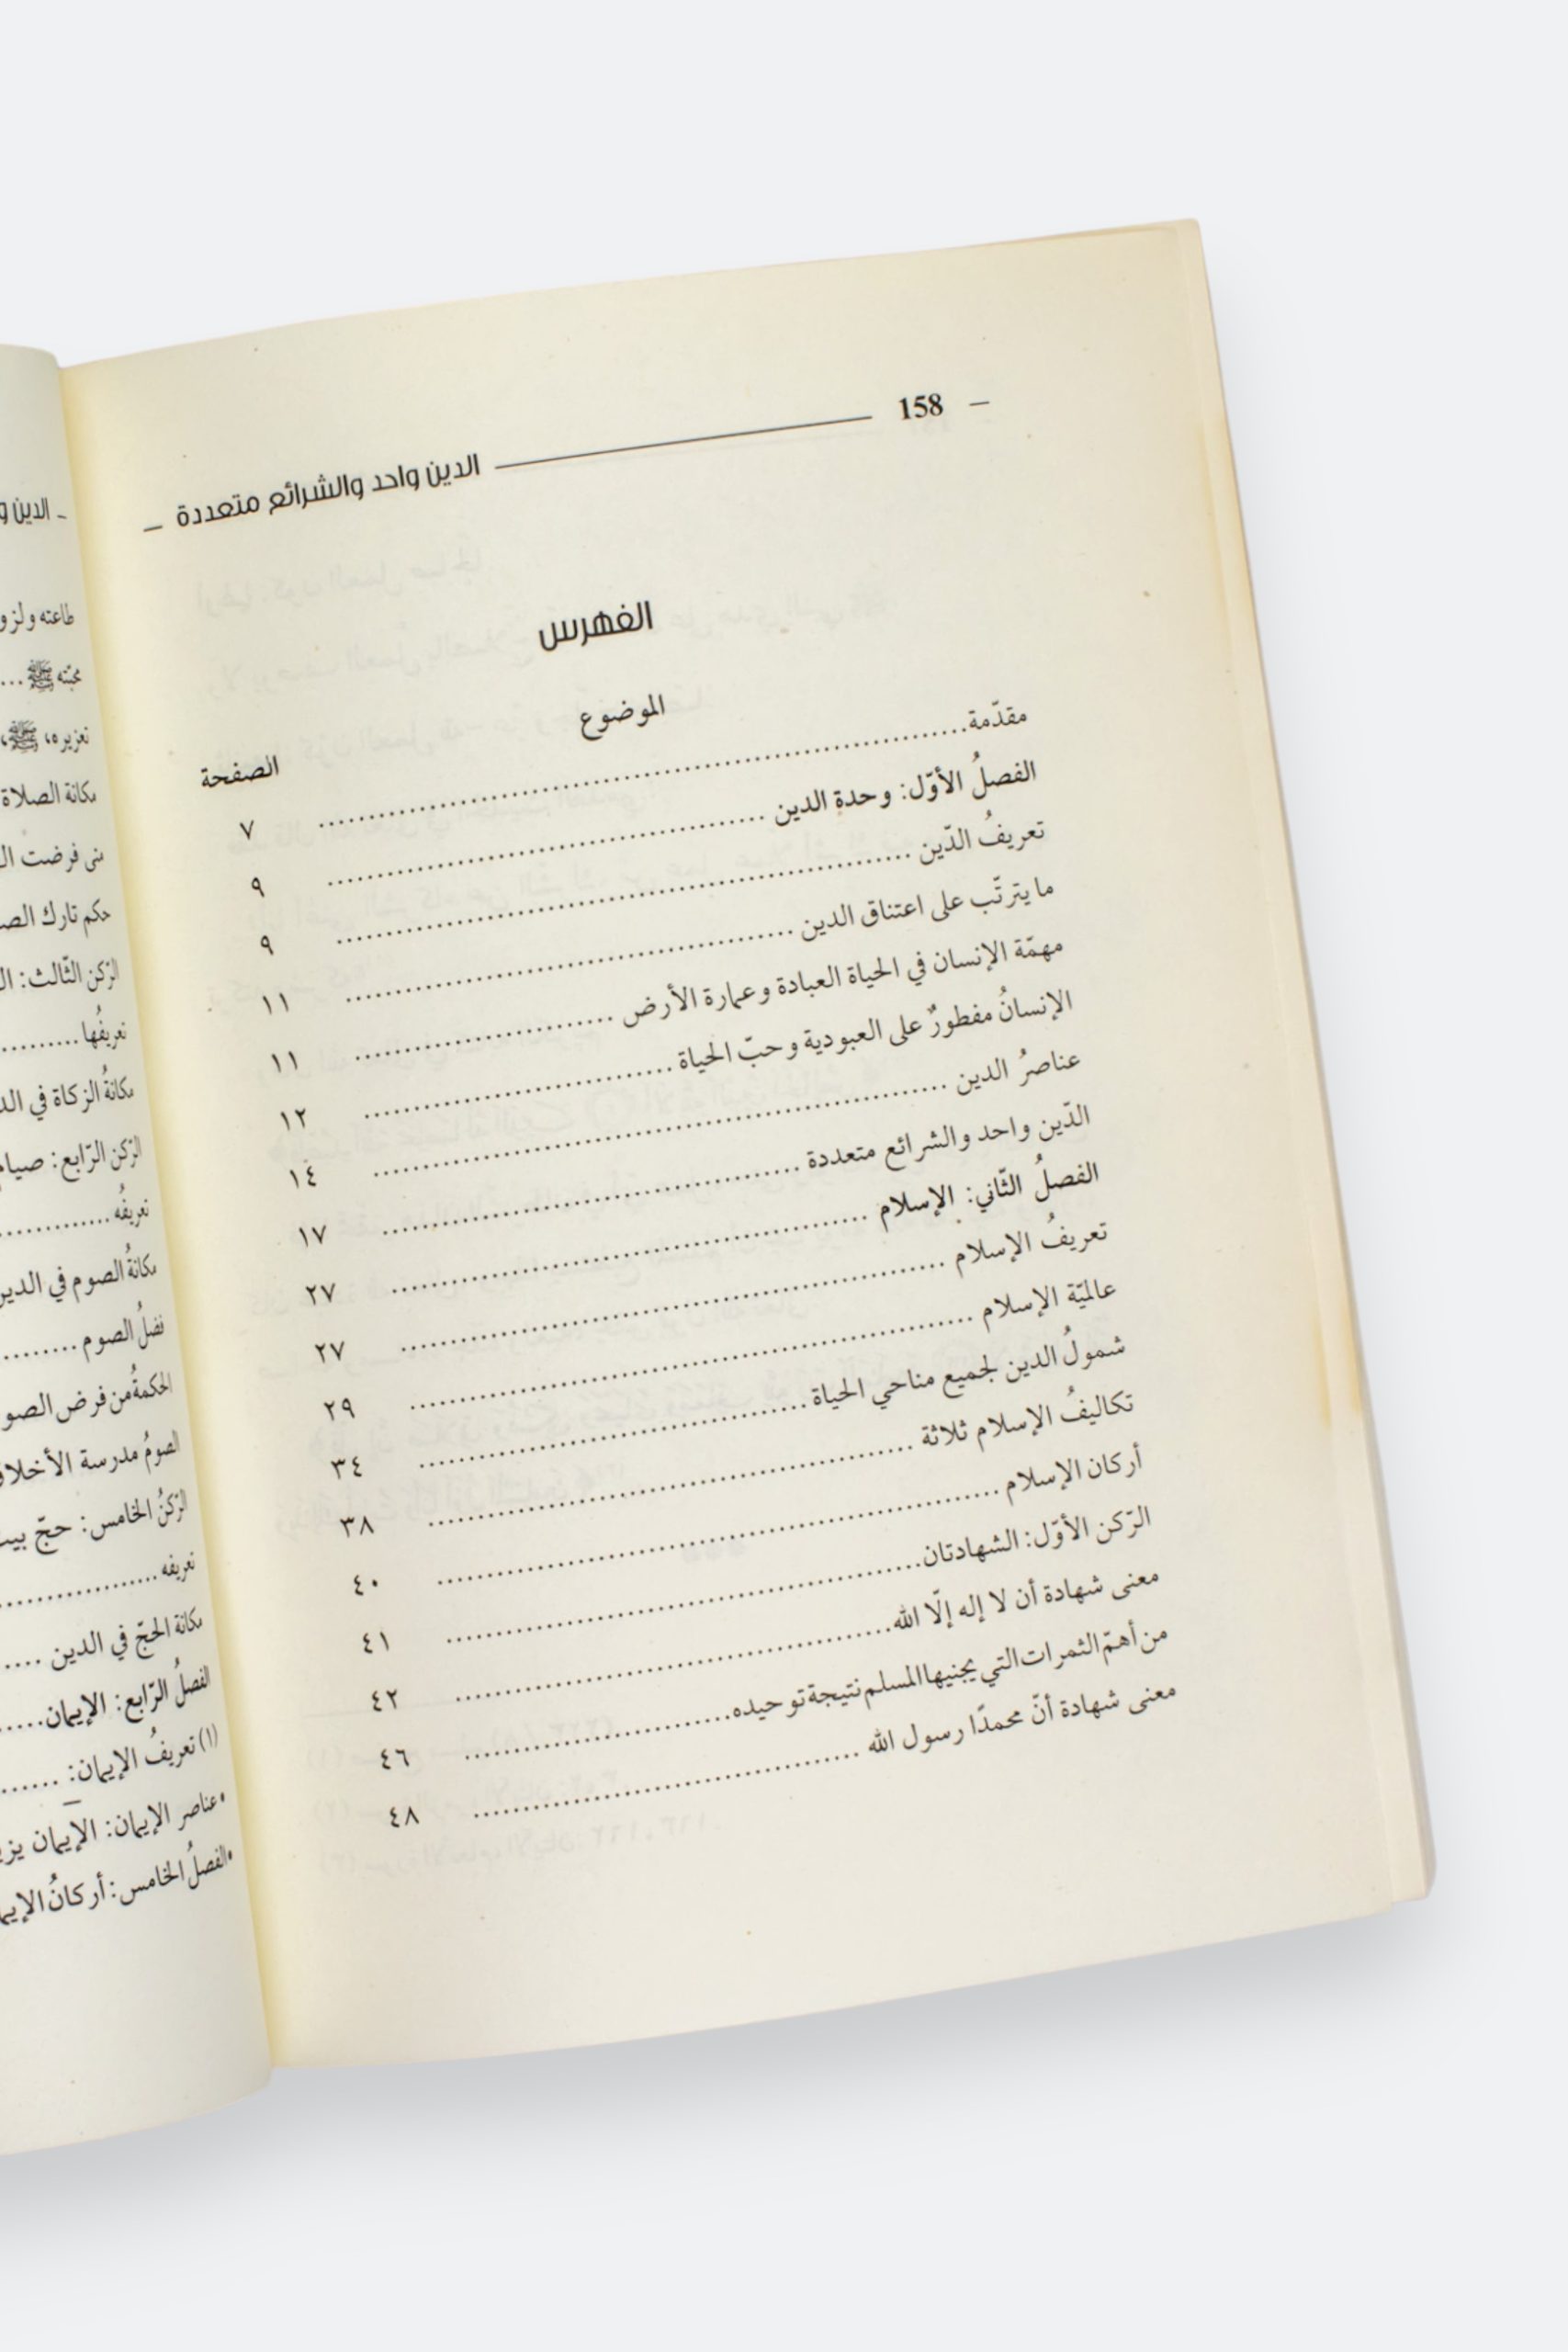 158 الدين واحد والشرائع متعددة
الفهرس
الموضوع الصفحة
مقدّمة ٧
الفصلُ الأوّل: وحدة الدين ٩
تعريفُ الدّين ٩
ما يترتّب على اعتناق الدين ١١
مهمّة الإنسان في الحياة العبادة وعمارة الأرض ١١
الإنسانُ مفطورٌ على العبودية وحبّ الحياة ١٢
عناصرُ الدين ١٤
الدّين واحد والشرائع متعددة ١٧
الفصلُ الثّاني: الإسلام ٢٧
تعريفُ الإسلام ٢٧
عالميّة الإسلام ٢٩
شمولُ الدين لجميع مناحي الحياة ٣٤
تكاليفُ الإسلام ثلاثة ٣٨
أركان الإسلام ٤٠
الرّكن الأوّل: الشهادتان ٤١
معنى شهادة أن لا إله إلّا الله ٤٢
من أهمّ الثمرات التي يجنيها المسلم نتيجة توحيده ٤٦
معنى شهادة أنّ محمدًا رسول الله ٤٨
الدين
طاعته
محبّته ﷺ
تعزيره، ﷺ،
مكانة الصلاة
متى فرضت
حكم تارك
الرّكن الثّالث:
تعريفُها
مكانةُ الزكاة في
الرّكن الرّابع:
تعريفُه
مكانةُ الصوم في
فضلُ الصوم
الحكمةُ من فرض
الصومُ مدرسة
الرّكنُ الخامس: حجّ
تعريفه
مكانة الحجّ في الدين
الفصلُ الرّابع: الإيمان
(١) تعريفُ الإيمان:
•عناصر الإيمان: الإيمان
•الفصلُ الخامس: أركانُ